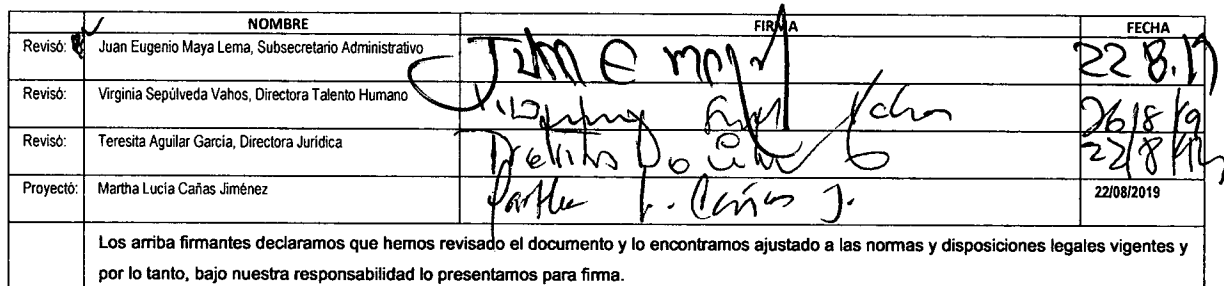 NOMBRE FIRMA FECHA
Revisó: Juan Eugenio Maya Lema, Subsecretario Administrativo Juan E Maya 22 8.19
Revisó: Virginia Sepúlveda Vahos, Directora Talento Humano 26/8/19
Revisó: Teresita Aguilar García, Directora Jurídica 22/8/19
Proyectó: Martha Lucía Cañas Jiménez Martha L. Cañas J. 22/08/2019
Los arriba firmantes declaramos que hemos revisado el documento y lo encontramos ajustado a las normas y disposiciones legales vigentes y
por lo tanto, bajo nuestra responsabilidad lo presentamos para firma.